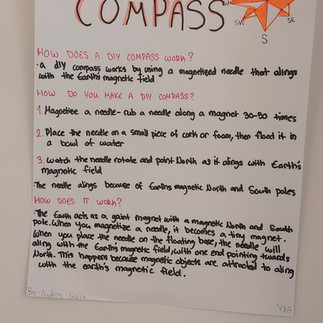 COMPASS
SW
SE
S
HOW DOES A DIY COMPASS WORK?
• a DIY compass works by using a magnetized needle that alings
with the Earth's magnetic field
HOW DO YOU MAKE A DIY COMPASS?
1. Magnetize a needle- rub a needle along a magnet 30-50 times
2. Place the needle on a small piece of cork or foam, then float it in
a bowl of water
3. watch the needle rotate and point North as it alings with Earth's
magnetic field
The needle alings because of Earths magnetic North and South poles
HOW DOES IT WORK?
The Earth acts as a gaint magnet with a magnetic North and South
pole. When you magnetize a needle, it becomes a tiny magnet.
When you place the needle on the floating base, the needle will
aling with the Earth's magnetic field, with one end pointing towards
North. This happens because magnetic objects are attracted to aling
with the earth's magnetic field.
By: